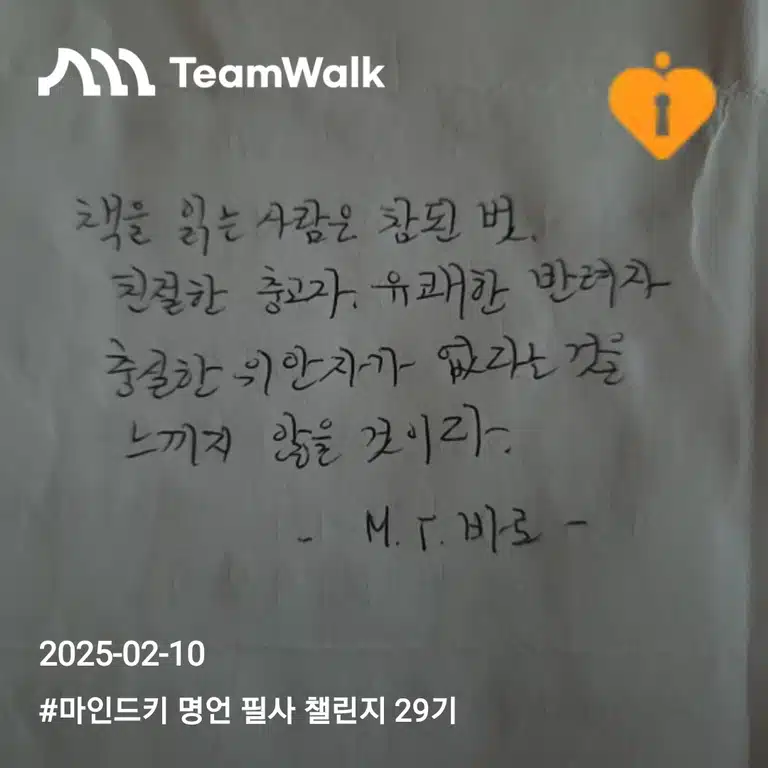 TeamWalk
책을 읽는 사람은 참된 벗,
친절한 충고자, 유쾌한 반려자
충실한 위안자가 없다는 것을
느끼지 않을 것이다.
- M.T.바로 -
2025-02-10
#마인드키 명언 필사 챌린지 29기